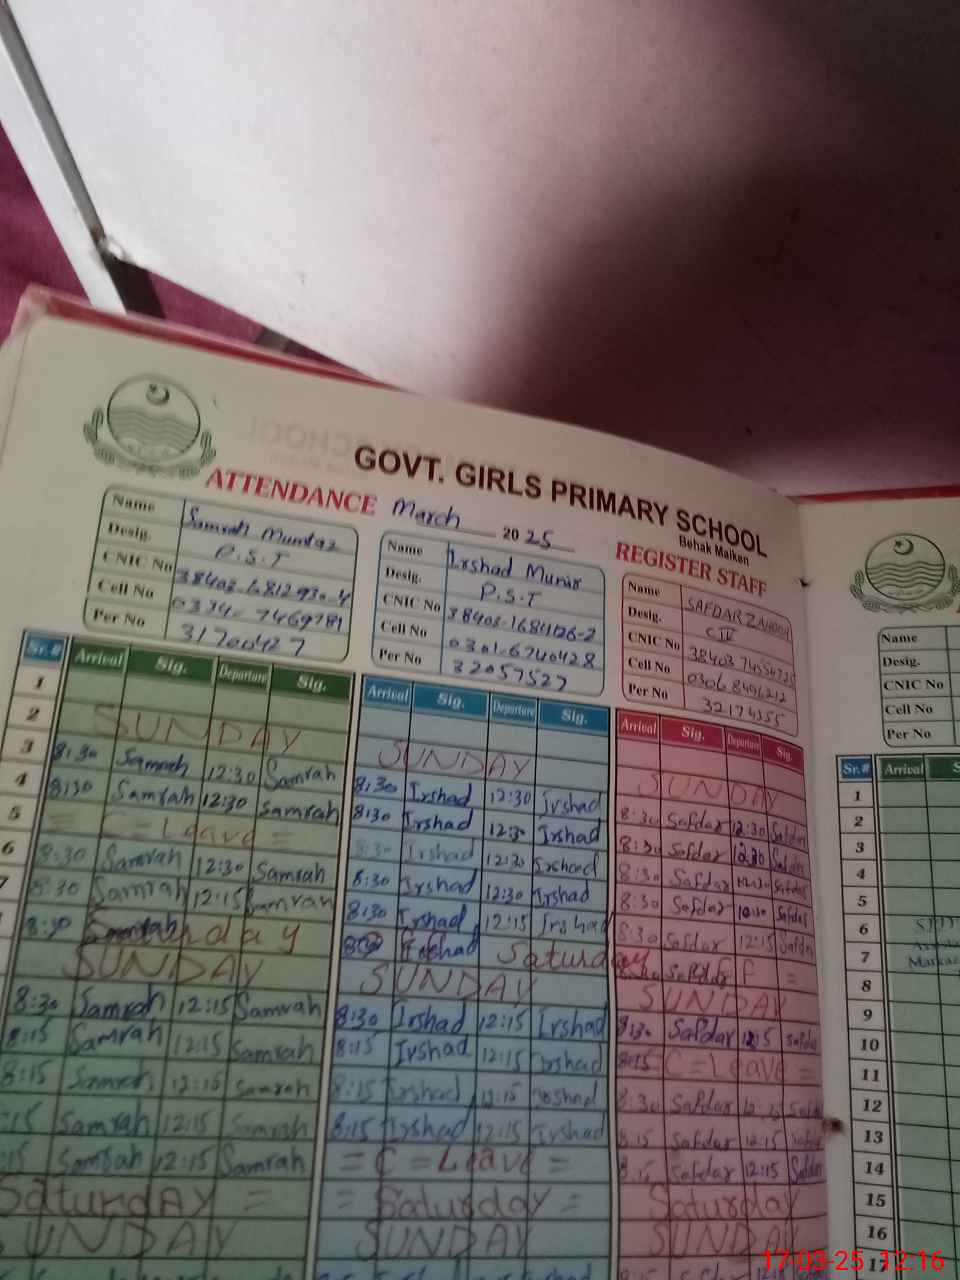 GOVT. GIRLS PRIMARY SCHOOL
Behak Maiken
ATTENDANCE March 2025 REGISTER STAFF
Name Samrah Mumtaz
Desig. P.S.T
CNIC No
Cell No 0334-7469781
Per No 31700427
Name Irshad Munir
Desig. P.S.T
CNIC No 38403-1684126-2
Cell No 0301-6740428
Per No 32057527
Name SAFDAR ZAHOOR
Desig.
CNIC No
Cell No 0306 8496212
Per No 32174355
Sr.# Arrival Sig. Departure Sig.
1
2 SUNDAY
3 8:30 Samrah 12:30 Samrah
4 8:30 Samrah 12:30 Samrah
5 = C=Leave =
6 8:30 Samrah 12:30 Samrah
7 8:30 Samrah 12:15 Samrah
8:30
SUNDAY
8:30 Samrah 12:15 Samrah
8:15 Samrah 12:15 Samrah
8:15 Samrah 12:15 Samrah
:15 Samrah 12:15 Samrah
:15 Samrah 12:15 Samrah
Saturday =
SUNDAY
Arrival Sig. Departure Sig.
SUNDAY
8:30 Irshad 12:30 Irshad
8:30 Irshad 12:30 Irshad
8:30 Irshad 12:30 Irshad
8:30 Irshad 12:30 Irshad
8:30 Irshad 12:15 Irshad
Irshad Saturday
SUNDAY
8:30 Irshad 12:15 Irshad
8:15 Irshad 12:15 Irshad
8:15 Irshad 12:15 Irshad
8:15 Irshad 12:15 Irshad
= C = Leave =
= Saturday =
SUNDAY
Arrival Sig. Departure Sig.
SUNDAY
8:30 Safdar 12:30 Safdar
8:30 Safdar 12:30 Safdar
8:30 Safdar 12:30 Safdar
8:30 Safdar Safdar
8:30 Safdar 12:15 Safdar
Safdar ff =
SUNDAY
8:30 Safdar Safdar
8:15 C=Leave =
8:30 Safdar 12:15
8:15 Safdar 12:15
8:15 Safdar 12:15 Safdar
Saturday
SUNDAY
Name
Desig.
CNIC No
Cell No
Per No
Sr.# Arrival S
1
2
3
4
5
6
7
8
9
10
11
12
13
14
15
16
17
17-03-25 12:16